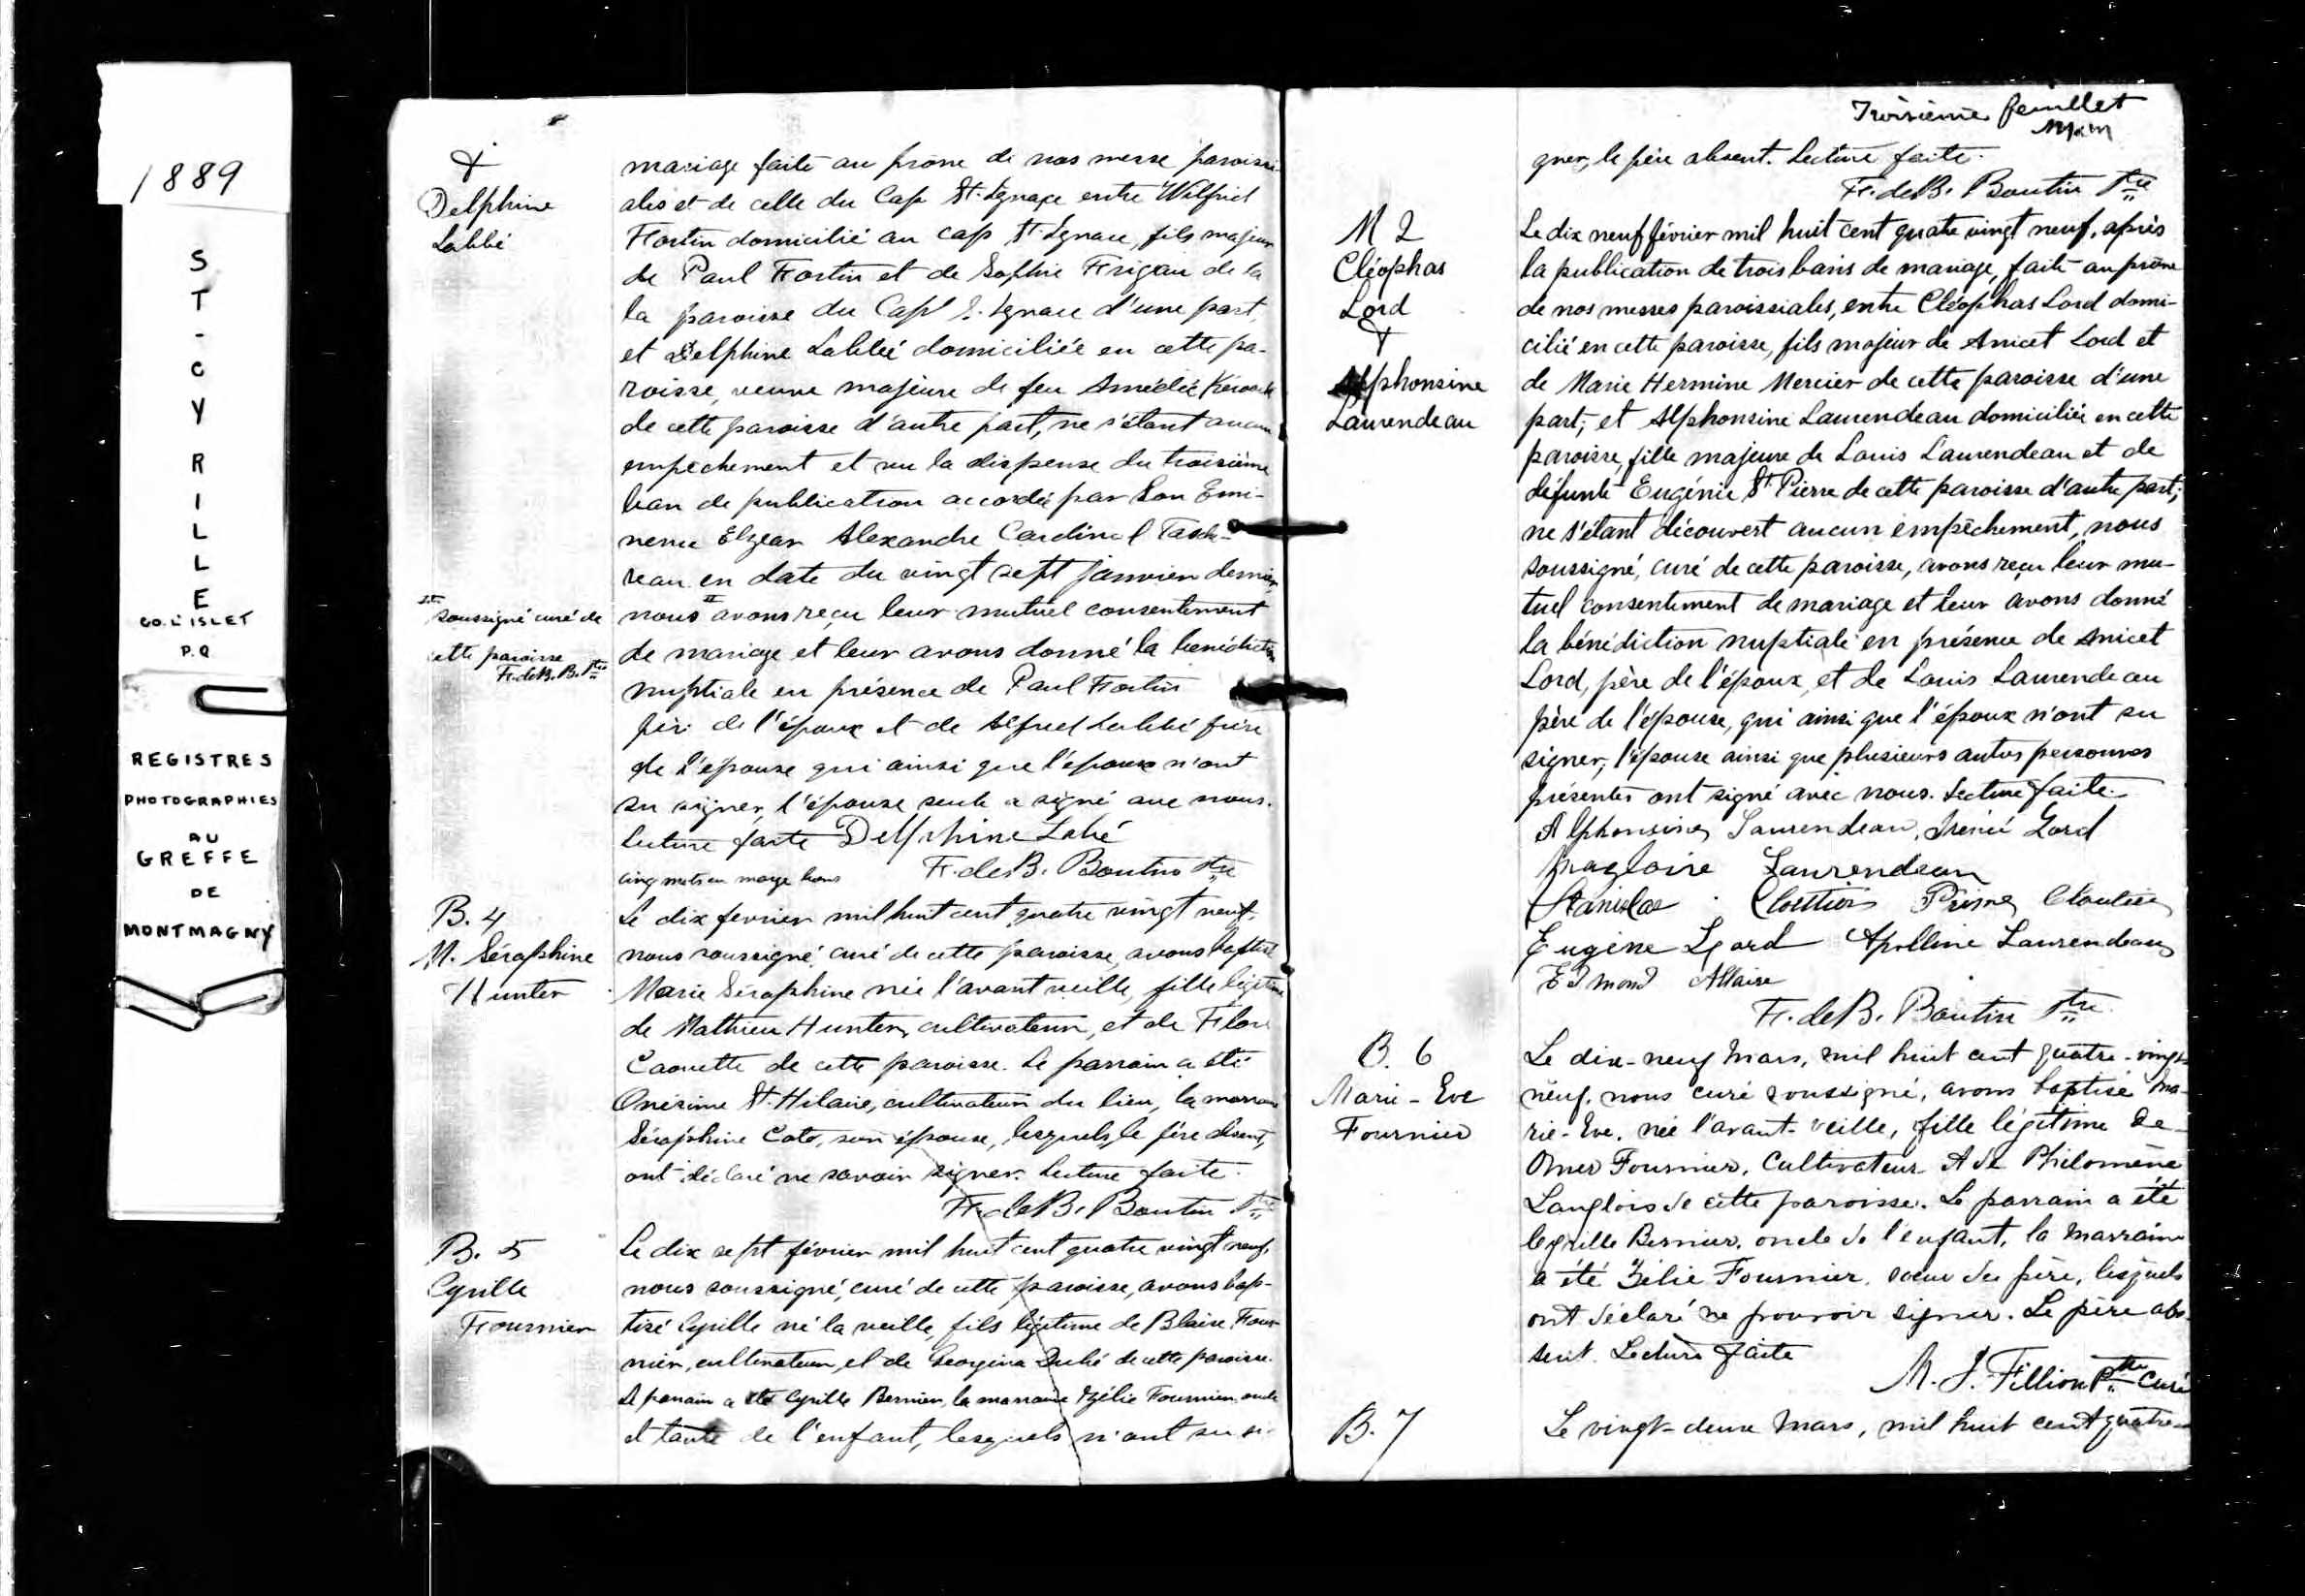 1889
ST-CYRILLE
CO. L'ISLET
P.Q
REGISTRES
PHOTOGRAPHIES
AU
GREFFE
DE
MONTMAGNY
&
Delphine
Labbé
mariage faite au prône de nos messe paroissi-
ales et de celle du Cap St. Ignace entre Wilfrid
Fortin domicilié au cap St. Ignace, fils majeur
de Paul Fortin et de Sophie de la
la paroisse du Cap S. Ignace d'une part,
et Delphine Labbé domiciliée en cette pa-
roisse, veuve majeure de feu Amédée
de cette paroisse d'autre part, ne s'étant aucun
empêchement et vu la dispense du troisième
ban de publication accordée par Son Emi-
nence Elzear Alexandre Cardinal Tasche-
reau en date du vingt sept janvier dernier,
nous avons reçu leur mutuel consentement
de mariage et leur avons donné la bénédiction
nuptiale en présence de Paul Fortin
père de l'époux et de Alfred Labbé frère
de l'épouse qui ainsi que l'époux n'ont
su signer, l'épouse seule a signé avec nous.
Lecture faite Delphine Labé
cinq mots en marge bons F. de B. Boutin Ptre
soussigné curé de
cette paroisse
F. de B. B. Ptre
B. 4
M. Séraphine
Hunter
Le dix fevrier mil huit cent quatre vingt neuf,
nous soussigné, curé de cette paroisse, avons baptisé
Marie Séraphine née l'avant veille, fille légitime
de Mathieu Hunter, cultivateur, et de Flore
Caouette de cette paroisse. Le parrain a été
Onésime St. Hilaire, cultivateur du lieu, la marraine
Séraphine Coté, son épouse, lesquels, le père absent,
ont déclaré ne savoir signer. Lecture faite.
F. de B. Boutin Ptre
B. 5
Cyrille
Fournier
Le dix sept février mil huit cent quatre vingt neuf,
nous soussigné, curé de cette paroisse, avons bap-
tisé Cyrille né la veille, fils légitime de Blaise Four-
nier, cultivateur, et de Georgina Dubé de cette paroisse.
Le parrain a été Cyrille Bernier, la marraine Zélie Fournier oncle
et tante de l'enfant, lesquels n'ont su si-
Troisième feuillet
gner, le père absent. Lecture faite.
F. de B. Boutin Ptre
M 2
Cléophas
Lord
&
Alphonsine
Laurendeau
Le dix neuf février mil huit cent quatre vingt neuf, après
la publication de trois bans de mariage, faite au prône
de nos messes paroissiales, entre Cléophas Lord domi-
cilié en cette paroisse, fils majeur de Anicet Lord et
de Marie Hermine Mercier de cette paroisse d'une
part; et Alphonsine Laurendeau domiciliée en cette
paroisse, fille majeure de Louis Laurendeau et de
défunte Eugénie St Pierre de cette paroisse d'autre part;
ne s'étant découvert aucun empêchement, nous
soussigné, curé de cette paroisse, avons reçu leur mu-
tuel consentement de mariage et leur avons donné
la bénédiction nuptiale en présence de Anicet
Lord, père de l'époux, et de Louis Laurendeau
père de l'épouse, qui ainsi que l'époux n'ont su
signer; l'épouse ainsi que plusieurs autres personnes
présentes ont signé avec nous. Lecture faite.
Alphonsine Laurendeau, Irénée Lord
Magloire Laurendeau
Stanislas Cloutier Prime Cloutier
Eugène Lord Apolline Laurendeau
Edmond Allaire
F. de B. Boutin Ptre
B. 6
Marie-Eve
Fournier
Le dix-neuf Mars, mil huit cent quatre-vingt-
neuf, nous curé soussigné, avons baptisé Ma-
rie-Eve, née l'avant-veille, fille légitime de
Omer Fournier, Cultivateur et de Philomène
Langlois de cette paroisse. Le parrain a été
Cyrille Bernier, oncle de l'enfant, la marraine
a été Zélie Fournier, soeur du père, lesquels
ont déclaré ne pouvoir signer. Le père ab-
sent. Lecture faite
M. J. Fillion Ptre Curé
B. 7
Le vingt-deux Mars, mil huit cent quatre-